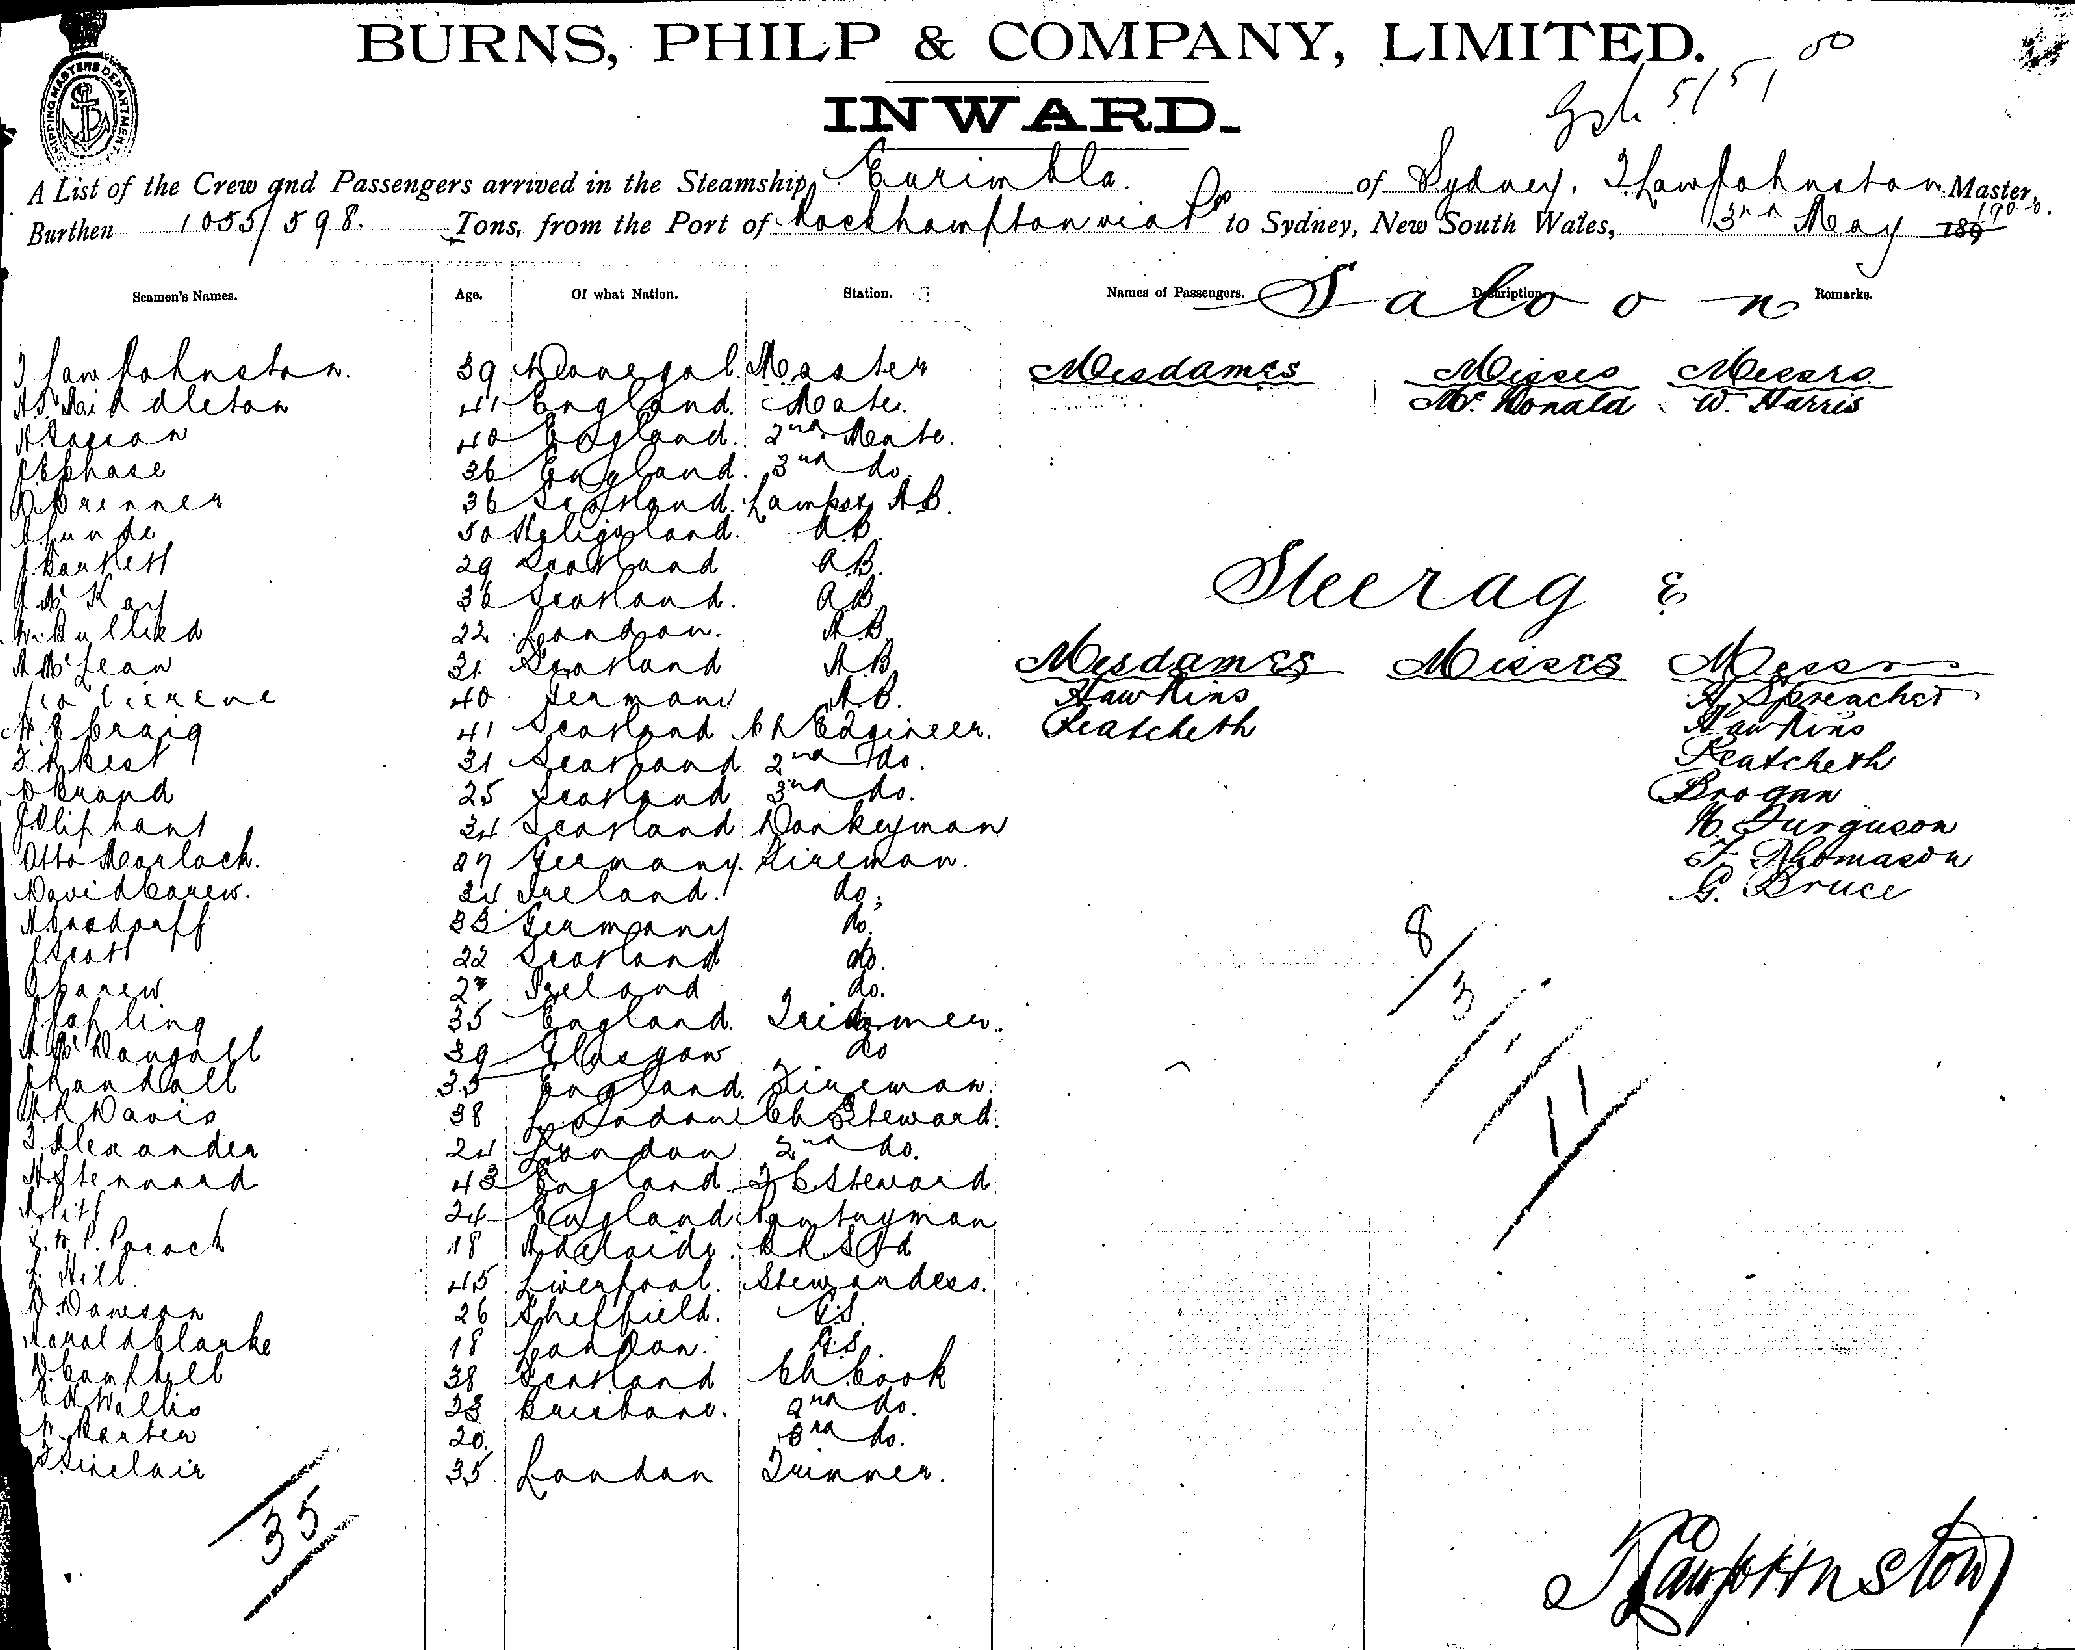 BURNS, PHILP & COMPANY, LIMITED.
INWARD.
SHIPPING MASTERS DEPARTMENT
A List of the Crew and Passengers arrived in the Steamship Eurimbla. of Sydney, T Law Johnston Master,
Burthen 1055/598. Tons, from the Port of Rockhampton via to Sydney, New South Wales, 3rd May 1900.
Seamen's Names. Age. Of what Nation. Station. Names of Passengers. Description Remarks.
Saloon
T Law Johnston. 39 Donegal. Master Mesdames Misses Messrs
Middleton 41 England. Mate. Mc Donald W. Harris
40 England. 2nd Mate.
36 England. 3rd do.
36 Scotland. Lamps & AB.
50 Heligoland. AB.
J Bartlett 29 Scotland AB.
Steerage
J Mc Kay 36 Scotland. AB
22 London. AB
A McLean 31 Scotland AB Mesdames Misses Messrs
40 Germany AB. Hawkins A Spreacher
Craig 41 Scotland Ch Engineer. Keatcheth Hawkins
31 Scotland 2nd do. Keatcheth
25 Scotland 3rd do. Brogan
J Oliphant 34 Scotland Donkeyman H. Furguson
Otto Morlach. 27 Germany. Fireman. F. Thomason
David Carew. 24 Ireland. do; G. Bruce
33 Germany do.
J Scott 22 Scotland do.
Carew 2 Ireland do.
35 England. Trimmer.
8/3/11
A McDougall 39 Glasgow do
J Randall 35 England. Fireman.
Davis 38 London Ch Steward.
T Alexander 24 London 2nd do.
A Stennard 43 England F C Steward
24 England Pantryman
Pocock 18 Adelaide. BR Std
L. Hill. 45 Liverpool. Stewardess.
Dawson 26 Sheffield. G.S.
Ronald Clarke 18 London. G.S.
D. Campbell 38 Scotland Ch. Cook
Wallis 23 Brisbane. 2nd do.
20. 3rd do.
Sinclair 35 London Trimmer.
35
T Law Johnston